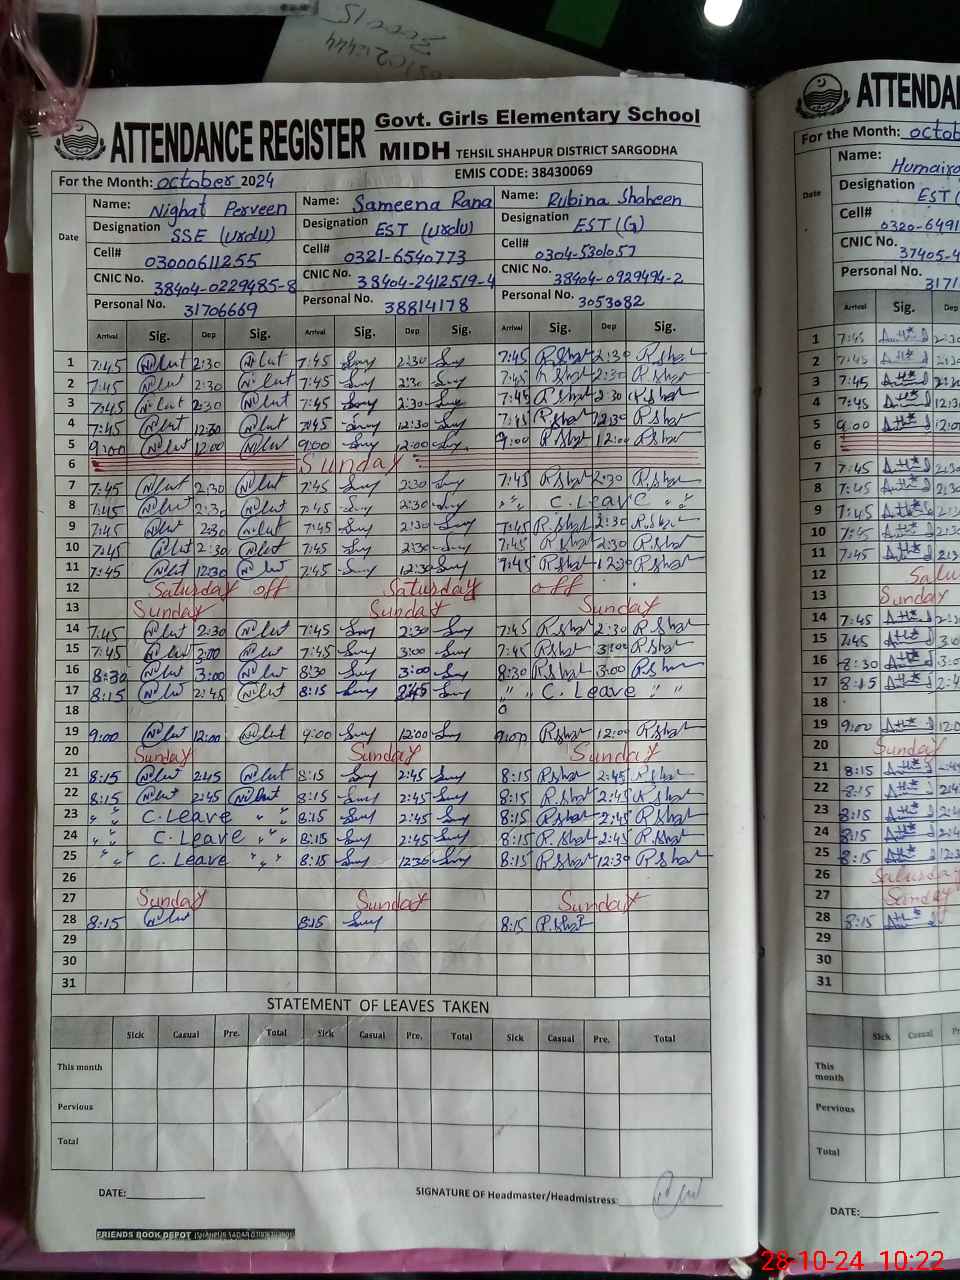 ATTENDANCE REGISTER Govt. Girls Elementary School
MIDH TEHSIL SHAHPUR DISTRICT SARGODHA
For the Month: october 2024 EMIS CODE: 38430069
Date Name: Nighat Perveen Name: Sameena Rana Name: Rubina Shaheen
Designation SSE (urdu) Designation EST (urdu) Designation EST (G)
Cell# 03000611255 Cell# 0321-6540773 Cell# 0304-5301057
CNIC No. 38404-0229485-8 CNIC No. 38404-2412519-4 CNIC No. 38404-0929494-2
Personal No. 31706669 Personal No. 38814178 Personal No. 3053082
Arrival Sig. Dep Sig. Arrival Sig. Dep Sig. Arrival Sig. Dep Sig.
1 7:45 2:30 7:45 2:30 7:45 R.Shat 2:30 R.Shat
2 7:45 2:30 7:45 2:30 7:45 R.Shat 2:30 R.Shat
3 7:45 2:30 7:45 2:30 7:45 R.Shat 2:30 R.Shat
4 7:45 12:30 7:45 12:30 7:45 R.Shat 12:30 R.Shat
5 9:00 12:00 9:00 12:00 9:00 R.Shat 12:00 R.Shat
6 Sunday
7 7:45 2:30 7:45 2:30 7:45 R.Shat 2:30 R.Shat
8 7:45 2:30 7:45 2:30 " " C. Leave " "
9 7:45 2:30 7:45 2:30 7:45 R.Shat 2:30 R.Shat
10 7:45 2:30 7:45 2:30 7:45 R.Shat 2:30 R.Shat
11 7:45 12:30 7:45 12:30 7:45 R.Shat 12:30 R.Shat
12 Saturday off Saturday off
13 Sunday Sunday Sunday
14 7:45 2:30 7:45 2:30 7:45 R.Shat 2:30 R.Shat
15 7:45 3:00 7:45 3:00 7:45 R.Shat 3:00 R.Shat
16 8:30 3:00 8:30 3:00 8:30 R.Shat 3:00 R.Shat
17 8:15 2:45 8:15 2:45 " " C. Leave " "
18
19 9:00 12:00 9:00 12:00 9:00 R.Shat 12:00 R.Shat
20 Sunday Sunday Sunday
21 8:15 2:45 8:15 2:45 8:15 R.Shat 2:45 R.Shat
22 8:15 2:45 8:15 2:45 8:15 R.Shat 2:45 R.Shat
23 " " C. Leave " " 8:15 2:45 8:15 R.Shat 2:45 R.Shat
24 " " C. Leave " " 8:15 2:45 8:15 R.Shat 2:45 R.Shat
25 " " C. Leave " " 8:15 12:30 8:15 R.Shat 12:30 R.Shat
26
27 Sunday Sunday Sunday
28 8:15 8:15 8:15 R.Shat
29
30
31
STATEMENT OF LEAVES TAKEN
Sick Casual Pre. Total Sick Casual Pre. Total Sick Casual Pre. Total
This month
Pervious
Total
DATE: SIGNATURE OF Headmaster/Headmistress:
FRIENDS BOOK DEPOT
ATTENDA
For the Month: octob
Date Name: Humaira
Designation EST (
Cell# 0320-6491
CNIC No. 37405-4
Personal No. 3171
Arrival Sig. Dep
1 7:45 2:30
2 7:45 2:30
3 7:45 2:30
4 7:45 12:3
5 9:00 12:0
6
7 7:45 2:30
8 7:45 2:30
9 7:45 2:3
10 7:45 2:3
11 7:45
12 Satu
13 Sunday
14 7:45 2:3
15 7:45 3:0
16 8:30 3:0
17 8:15 2:4
18
19 9:00 12:0
20 Sunday
21 8:15 2:4
22 8:15 2:4
23 8:15 2:4
24 8:15 2:4
25 8:15 12:3
26 Saturday
27 Sunday
28 8:15
29
30
31
Sick Casual P
This month
Pervious
Total
DATE:
28-10-24 10:22